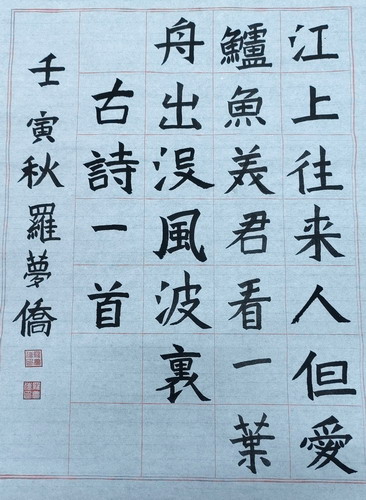 江上往来人但愛
鱸魚美君看一葉
舟出没風波裏
古詩一首
壬寅秋羅夢僑